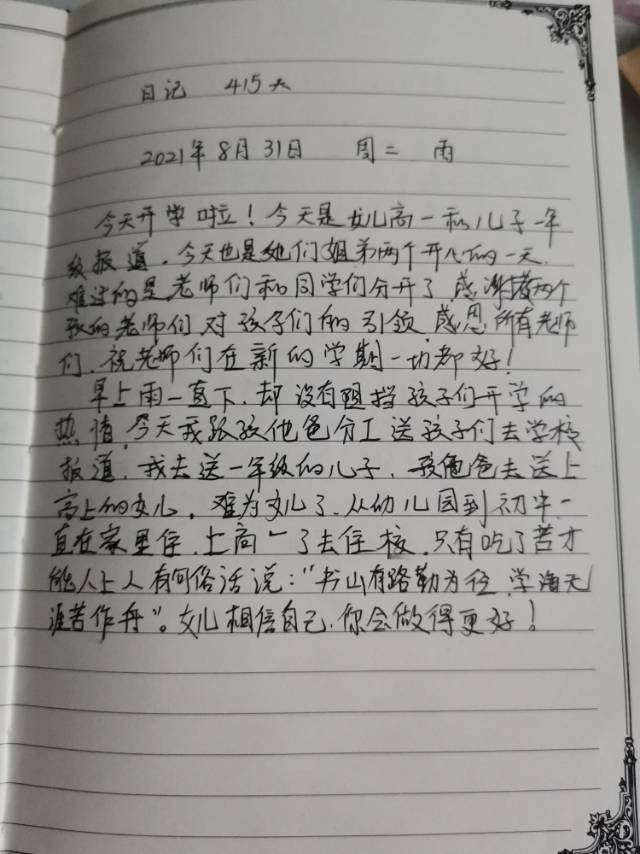 日记 415天
2021年8月31日 周二 雨
今天开学啦！今天是女儿高一和儿子一年
级报道，今天也是她们姐弟两个开心的一天，
难过的是老师们和同学们分开了感谢两个
孩的老师们对孩子们的引领，感恩所有老师
们，祝老师们在新的学期一切都好！
早上雨一直下，却没有阻挡孩子们开学的
热情，今天我跟孩他爸分工送孩子们去学校
报道，我去送一年级的儿子，孩他爸去送上
高上的女儿，难为女儿了，从幼儿园到初中一
直在家里住，上高一了去住校，只有吃了苦才
能人上人有句俗话说："书山有路勤为径，学海无
涯苦作舟"。女儿相信自己，你会做得更好！